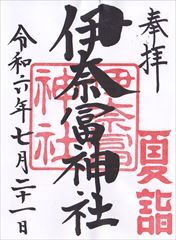 奉拝
夏詣
伊奈冨神社
伊奈冨
神社
令和六年七月二十一日